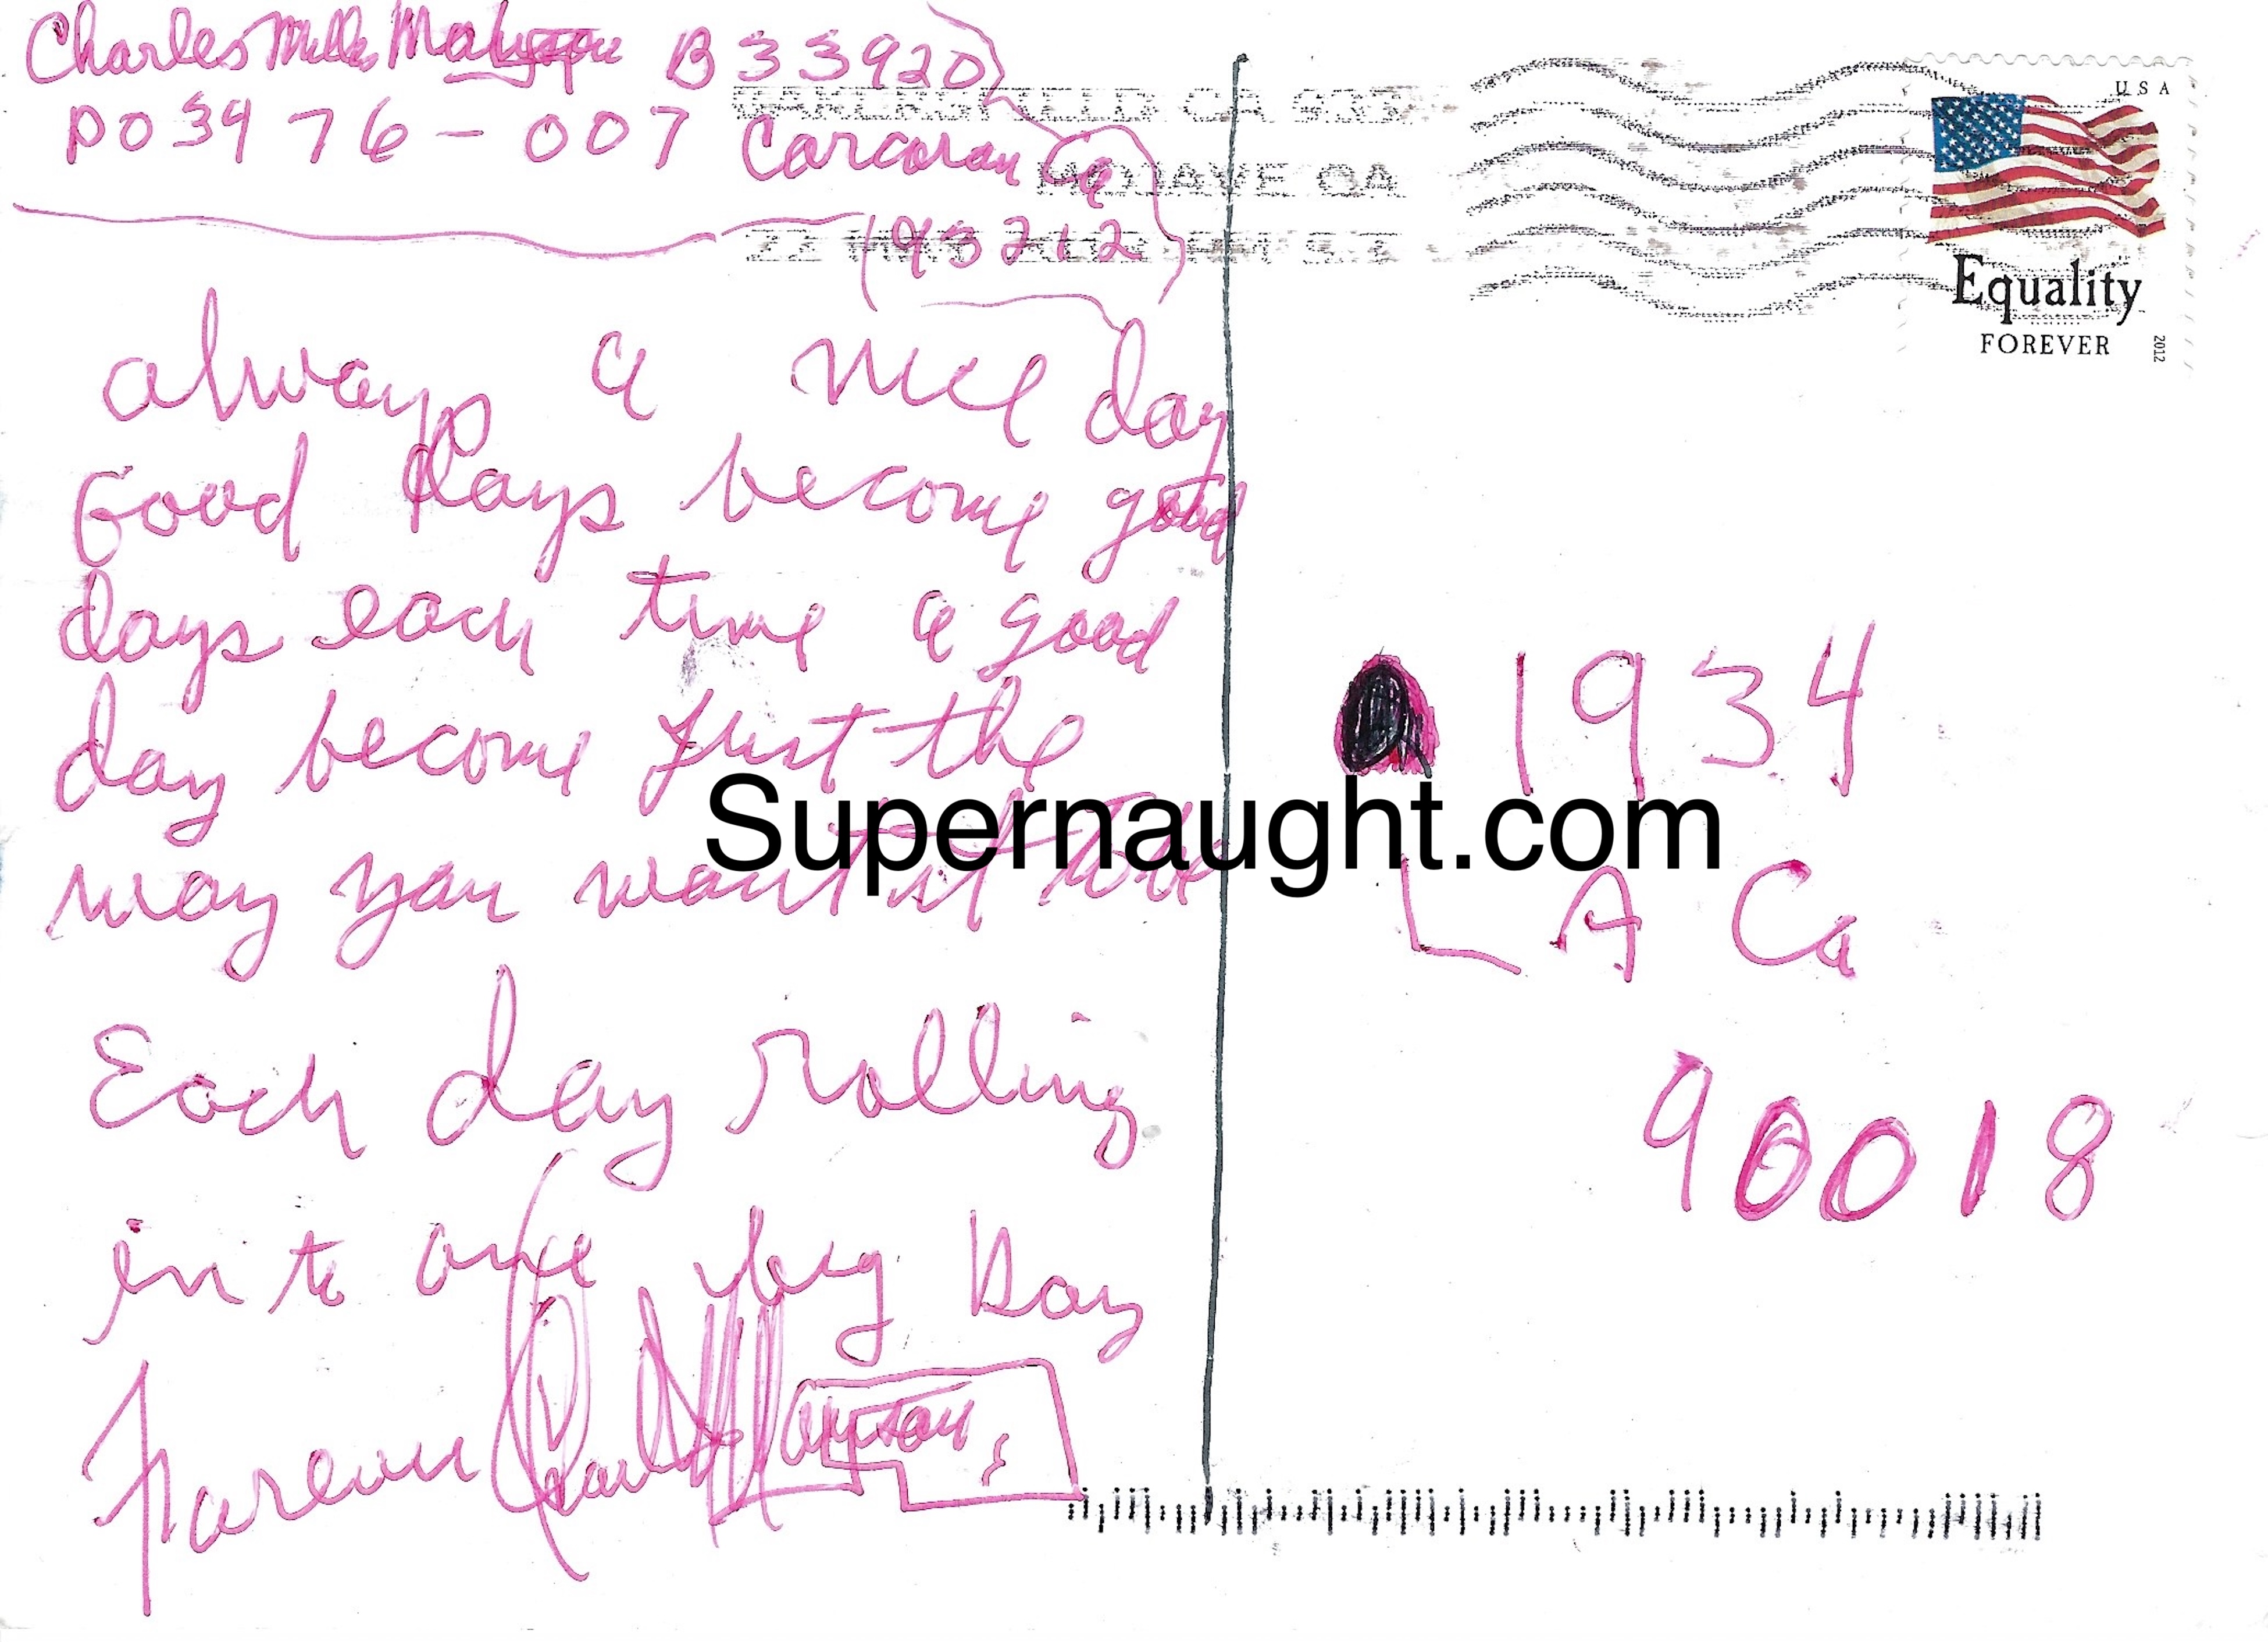 Charles Mills Manson B33920
PO 3476-007 Corcoran Ca
93212
BAKERSFIELD CA 933
MOJAVE CA
USA
Equality
FOREVER
2012
always a nice day
Good Days become good
days each time a good
day become just the
way you want it to be
Each day rolling
in to one big Day
Charles Manson
1934
L A Ca
90018
Supernaught.com